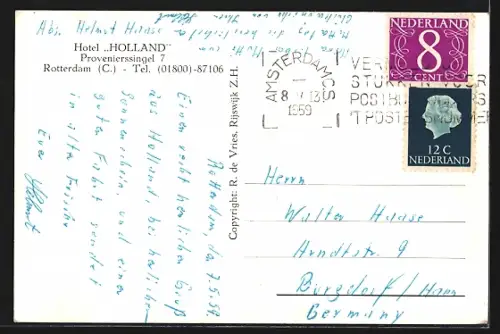 Abs. Helmut Haase
Hotel „HOLLAND"
Provenierssingel 7
Rotterdam (C.) - Tel. (01800)-87106
Rotterdam, den 7.5.59.
Einen recht herzlichen Gruß
aus Holland, bei herrlichem
Sonnenschein, und einer
guten Fahrt sendet
in alter Frische
Euer Helmut
Copyright: R. de Vries. Rijswijk Z.H.
NEDERLAND
8
CENT
AMSTERDAM C.S
8 V 13
1959
STUKKEN VOOR
12 C
NEDERLAND
Herrn
Walter Haase
Arndtstr. 9
Burgdorf / Hann
Germany